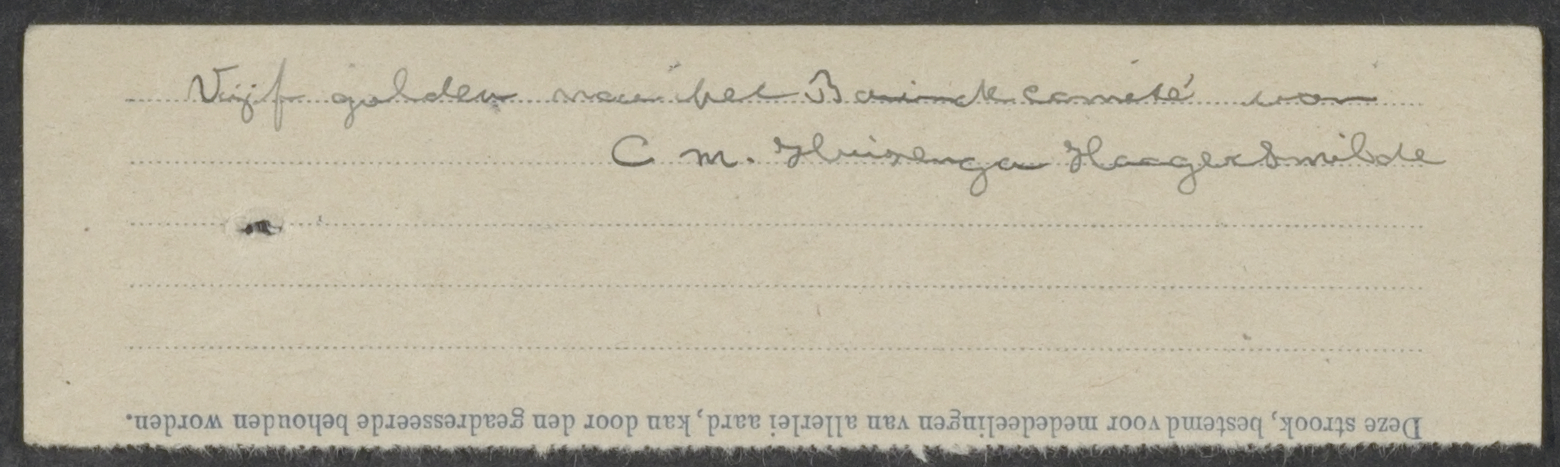 Vijf gulden voor het Bavinckcomité van
C M. Huizenga Hoogersmilde
Deze strook, bestemd voor mededeelingen van allerlei aard, kan door den geadresseerde behouden worden.